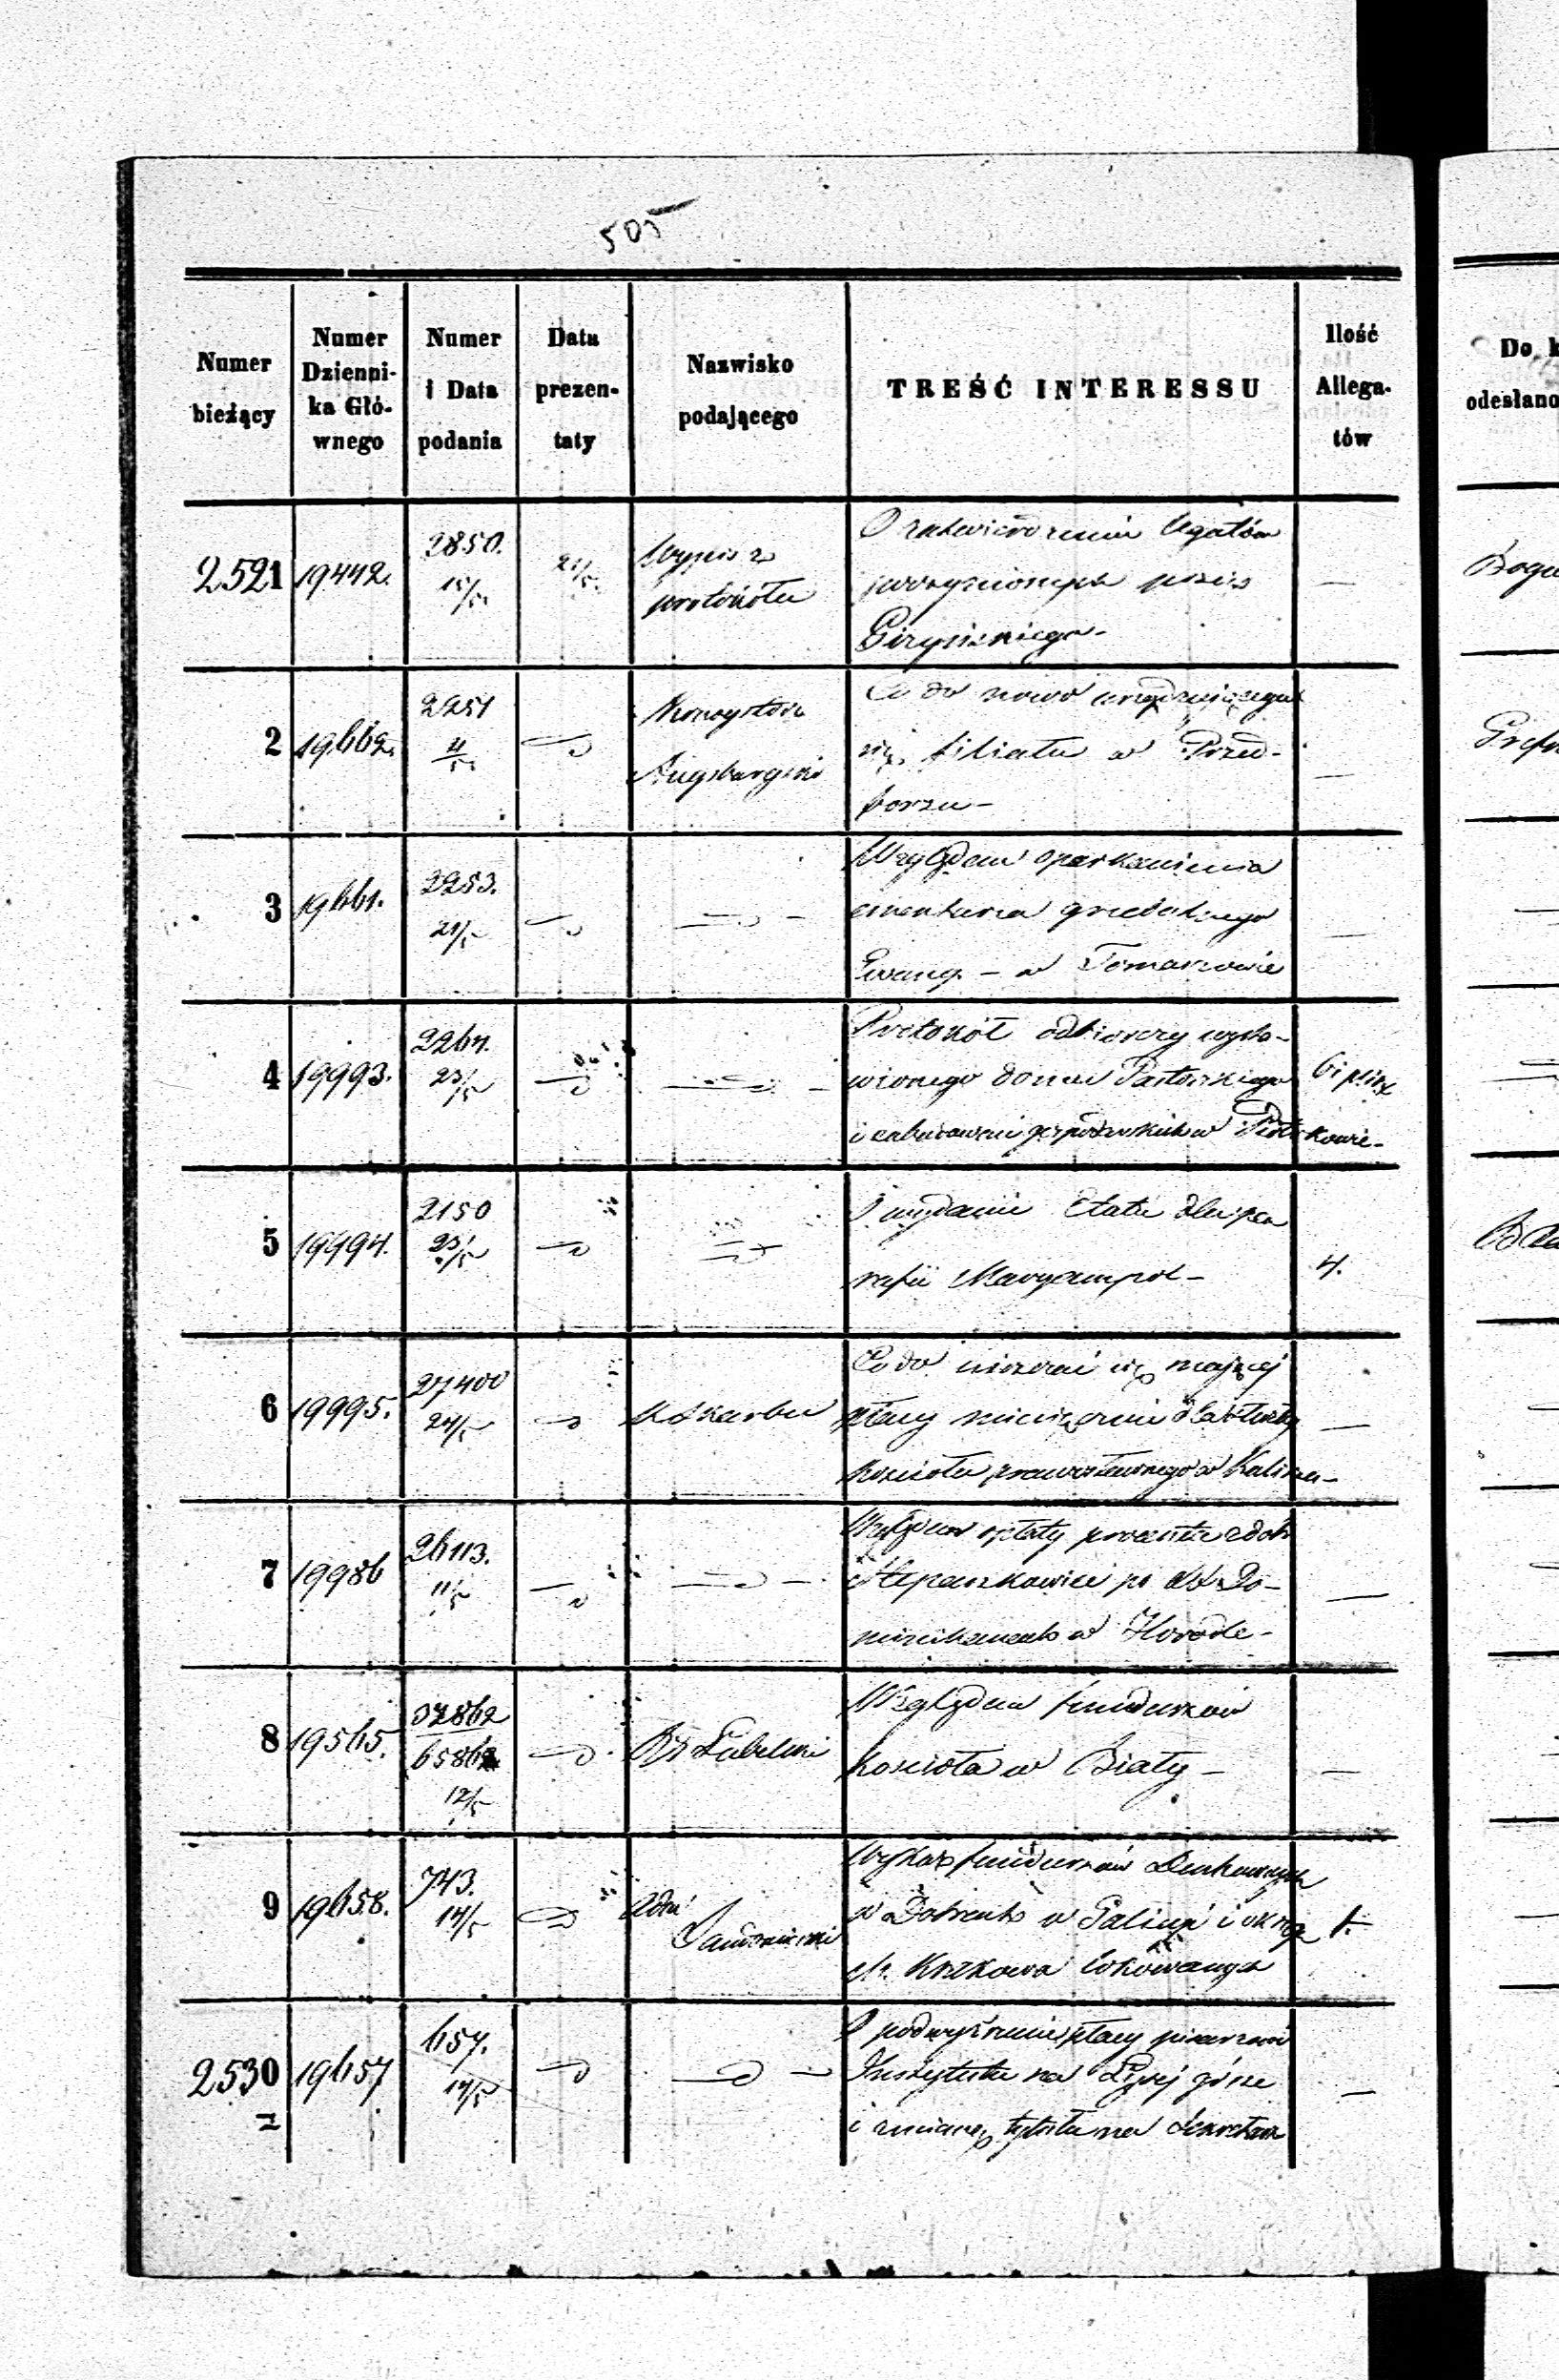 505
Numer bieżący | Numer Dzienni-ka Głó-wnego | Numer i Data podania | Data prezen-taty | Nazwisko podającego | TREŚĆ INTERESSU | Ilość Allega-tów | Do k
odesłano
2521 | 19442. | 2850. 15/5 | 21/5. | Wypis z protokółu | O zatwierdzenie legatów
poczynionych przez
2 | 19662. | 2251 | Konsystorz Augsburgski | Co do nowo urządzającego
się filiału w Przed-
borzu –
3 | 19661. | 2253. 21/5 | Względem oparkanienia
cmentarza grzebalnego
Ewang. – w Tomaszowie
4 | 19993. | 2264. 23/5 | Protokół odbiorczy wysta-
wionego domu Pastorskiego
i zabudowań gospodarskich w Piotrkowie –
5 | 19994. | 2150 23/5 | O wydanie Etatu dla pa
rafii Maryampol – | 4.
6 | 19995. | 27400 24/5 | K Skarbu | Co do uiszczać się mającej
płacy miesięcznie dla
Kościoła prawosławnego w Kaliszu –
7 | 19986 | 26113. 11/5 | Względem opłaty procentu z dóbr
Stepankowice po XX Do-
minikanach w Horodle –
8 | 19565. | 37862 65862 12/5 | RG Lubelski | Względem funduszów
kościoła w Biały –
9 | 19658. | 743. 14/5 | Adm Sandomierski | Wykaz funduszów Duchownych
w Dobrach w Galicyi i okręg
M. Krakowa lokowanych | 1.
2530 | 19657 | 657. 14/5 | O podwyższenie płacy pisarzowi
Instytutu na Łysej górze
i zmianę tytułu na Sekretarz